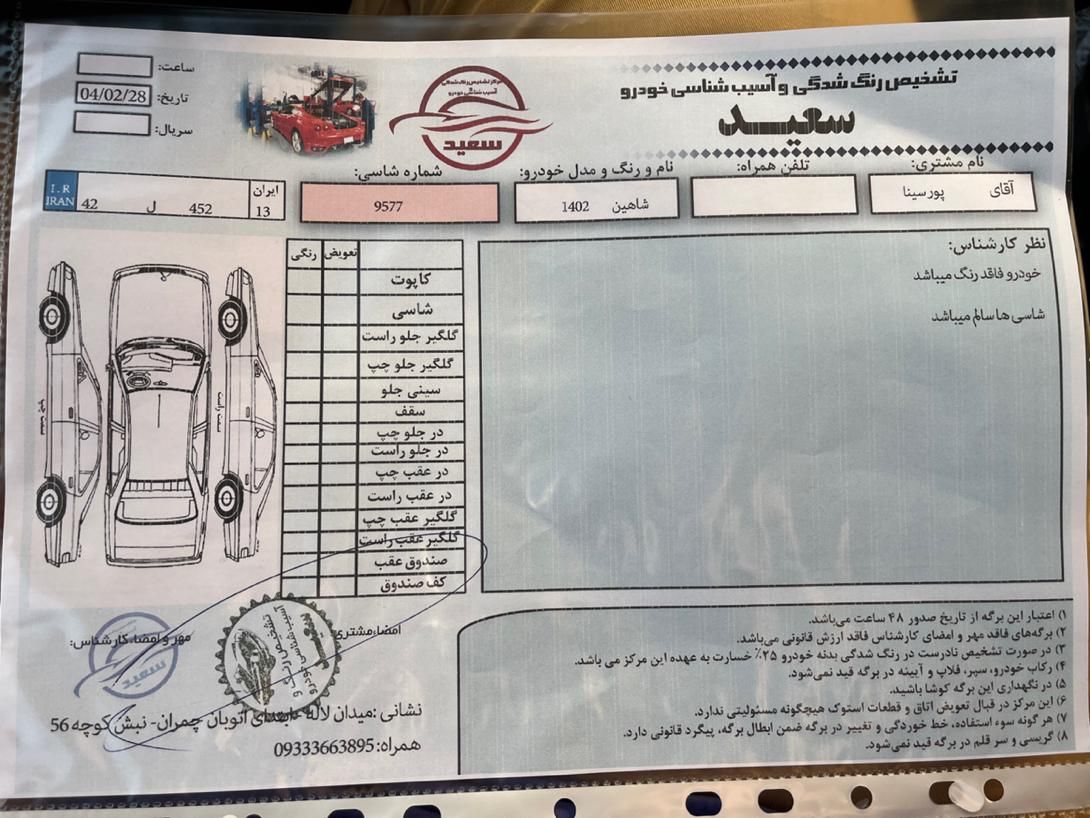 تشخیص رنگ شدگی و آسیب شناسی خودرو
سعید
مرکز تشخیص رنگ شدگی
آسیب شناسی خودرو
سعید
ساعت:
تاریخ: 04/02/28
سریال:
نام مشتری:
آقای پورسینا
تلفن همراه:
نام و رنگ و مدل خودرو:
شاهین 1402
شماره شاسی:
9577
I.R IRAN 42 ل 452 ایران 13
نظر کارشناس:
خودرو فاقد رنگ میباشد
شاسی ها سالم میباشد
تعویض رنگی
کاپوت
شاسی
گلگیر جلو راست
گلگیر جلو چپ
سینی جلو
سقف
در جلو چپ
در جلو راست
در عقب چپ
در عقب راست
گلگیر عقب چپ
گلگیر عقب راست
صندوق عقب
کف صندوق
سمت راست
سمت چپ
۱) اعتبار این برگه از تاریخ صدور ۴۸ ساعت می‌باشد.
۲) برگه‌های فاقد مهر و امضای کارشناس فاقد ارزش قانونی می‌باشد.
۳) در صورت تشخیص نادرست در رنگ شدگی بدنه خودرو ۲۵٪ خسارت به عهده این مرکز می باشد.
۴) رکاب خودرو، سپر، فلاپ و آیینه در برگه قید نمی‌شود.
۵) در نگهداری این برگه کوشا باشید.
۶) این مرکز در قبال تعویض اتاق و قطعات استوک هیچگونه مسئولیتی ندارد.
۷) هر گونه سوء استفاده، خط خوردگی و تغییر در برگه ضمن ابطال برگه، پیگرد قانونی دارد.
۸) گریسی و سر قلم در برگه قید نمی‌شود.
امضاء مشتری
مهر و امضاء کارشناس:
سعید
تشخیص رنگ و
آسیب شناسی خودرو
سعید
نشانی :میدان لاله -ابتدای اتوبان چمران- نبش کوچه 56
همراه:09333663895